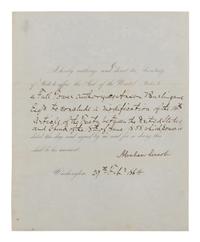 I hereby authorize and direct the Secretary
of State to affix the Seal of the United States
to Full Power authorizing Anson Burlingame
Esqr. to conclude a modification of the
Article of the Treaty between the United States
and China of the 18th of June 1858
dated this day and signed by me and for so doing this
shall be his warrant.
Abraham Lincoln
Washington, 1864